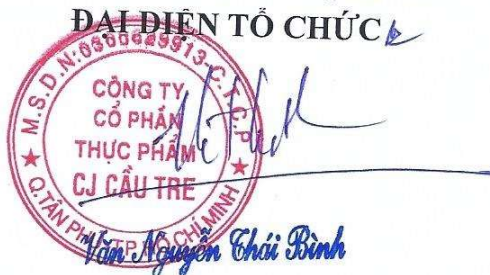 ĐẠI DIỆN TỔ CHỨC
M.S.D.N:0300629913-C.T.C.P
CÔNG TY
CỔ PHẦN
THỰC PHẨM
CJ CẦU TRE
Q.TÂN PHÚ-TP.HỒ CHÍ MINH
Văn Nguyễn Thái Bình